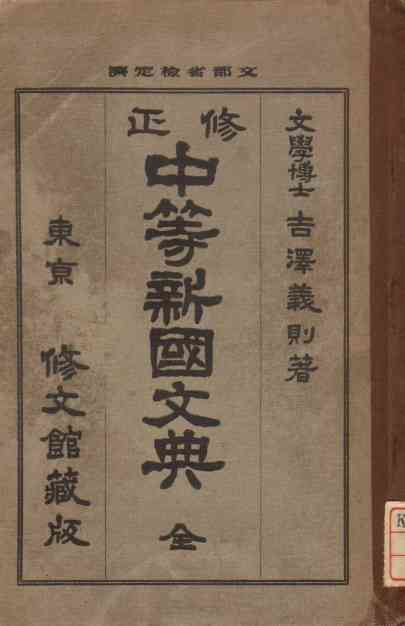 文部省檢定濟
文學博士 吉澤義則著
修正
中等新國文典 全
東京 修文館藏版
K